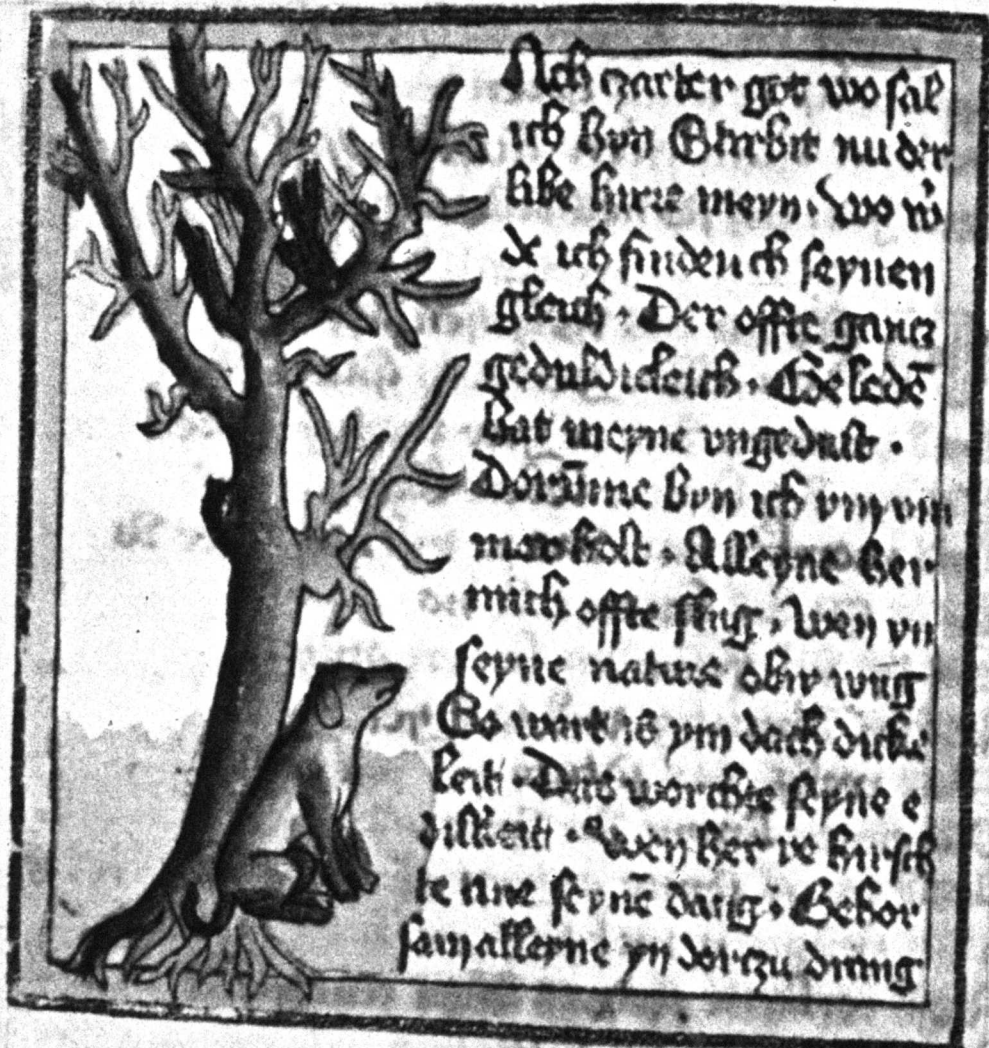 Ach czarter got wo sal
ich hyn Starbit nu der
libe hirre meyn. Wo w̄
de ich finden ich seynen
gleich. Der offte gancz
geduldicleich. Geledē
hat meyne vngedult.
Dorūme byn ich ym vm
mer holt. Alleyne her
mich offte slug. Wen yn
seyne nature obir wug
So wart is ym doch dicke
leit. Das worchte seyne e
dilkeit. Wen her ye hirsch
te ane seynē dang. Gehor
sam alleyne yn dorczu drang